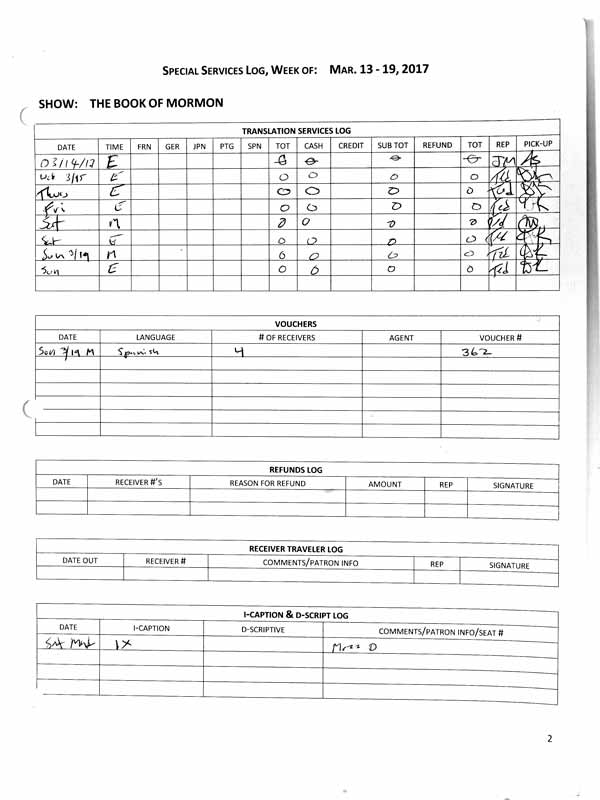 SPECIAL SERVICES LOG, WEEK OF: MAR. 13 - 19, 2017
SHOW: THE BOOK OF MORMON
TRANSLATION SERVICES LOG
DATE TIME FRN GER JPN PTG SPN TOT CASH CREDIT SUB TOT REFUND TOT REP PICK-UP
03/14/17 E 0 0 0 0 JM AS
Wed 3/15 E 0 0 0 0 Ted
Thurs E 0 0 0 0 Ted
Fri E 0 0 0 0 Ted
Sat M 0 0 0 0
Sat E 0 0 0 0 Ted
Sun 3/19 M 0 0 0 0 Ted
Sun E 0 0 0 0 Ted
VOUCHERS
DATE LANGUAGE # OF RECEIVERS AGENT VOUCHER #
Sun 3/19 M Spanish 4 362
REFUNDS LOG
DATE RECEIVER #'S REASON FOR REFUND AMOUNT REP SIGNATURE
RECEIVER TRAVELER LOG
DATE OUT RECEIVER # COMMENTS/PATRON INFO REP SIGNATURE
I-CAPTION & D-SCRIPT LOG
DATE I-CAPTION D-SCRIPTIVE COMMENTS/PATRON INFO/SEAT #
Sat Mat 1X D
2